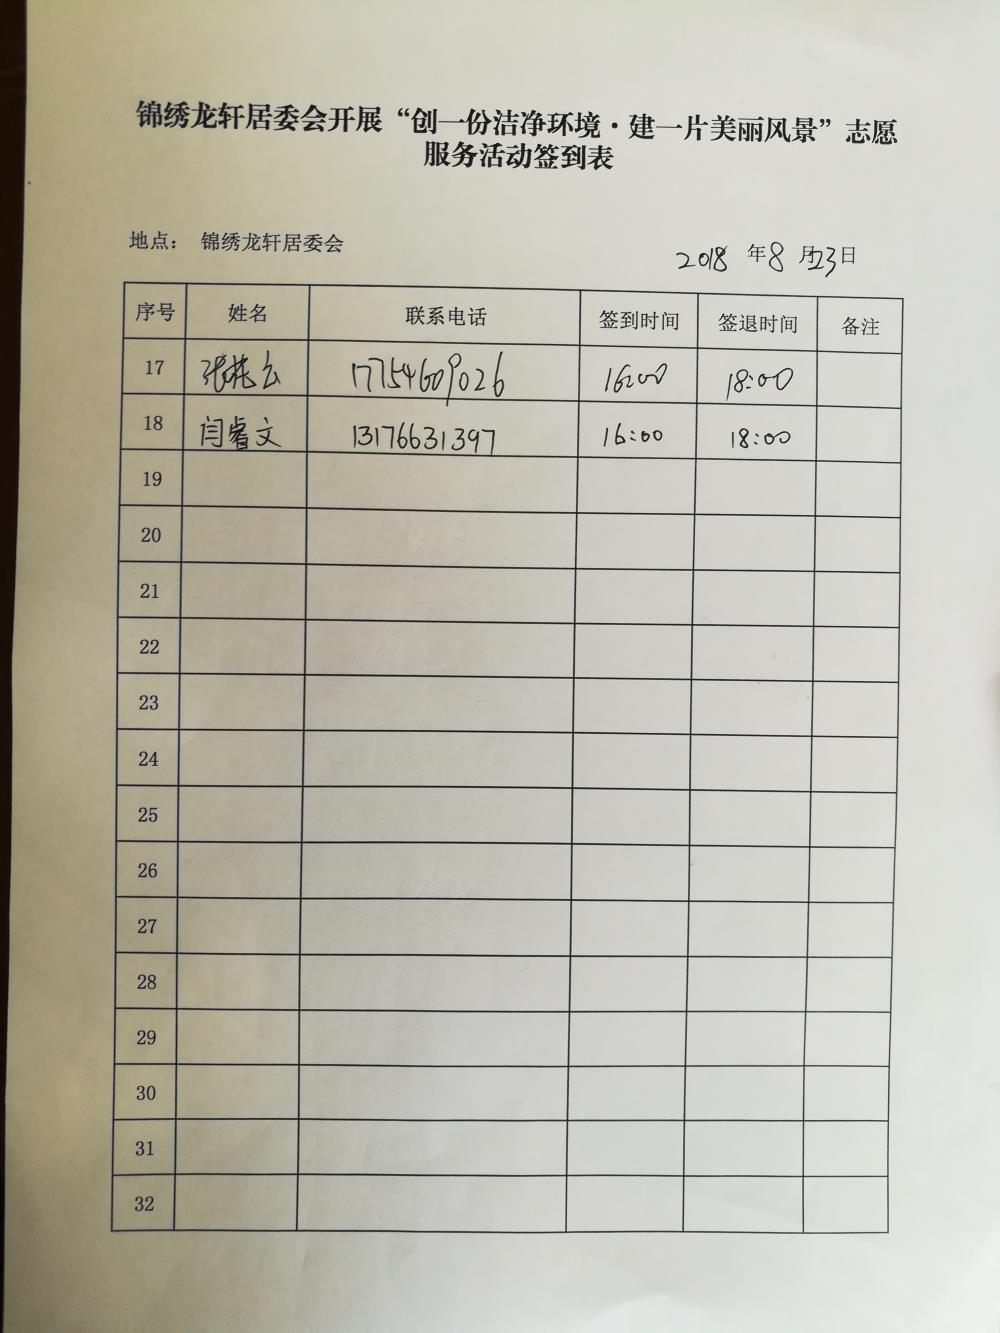 锦绣龙轩居委会开展“创一份洁净环境·建一片美丽风景”志愿
服务活动签到表
地点： 锦绣龙轩居委会 2018 年 8 月 23 日
序号 姓名 联系电话 签到时间 签退时间 备注
17 张 云 17754609026 16:00 18:00
18 闫睿文 13176631397 16:00 18:00
19
20
21
22
23
24
25
26
27
28
29
30
31
32